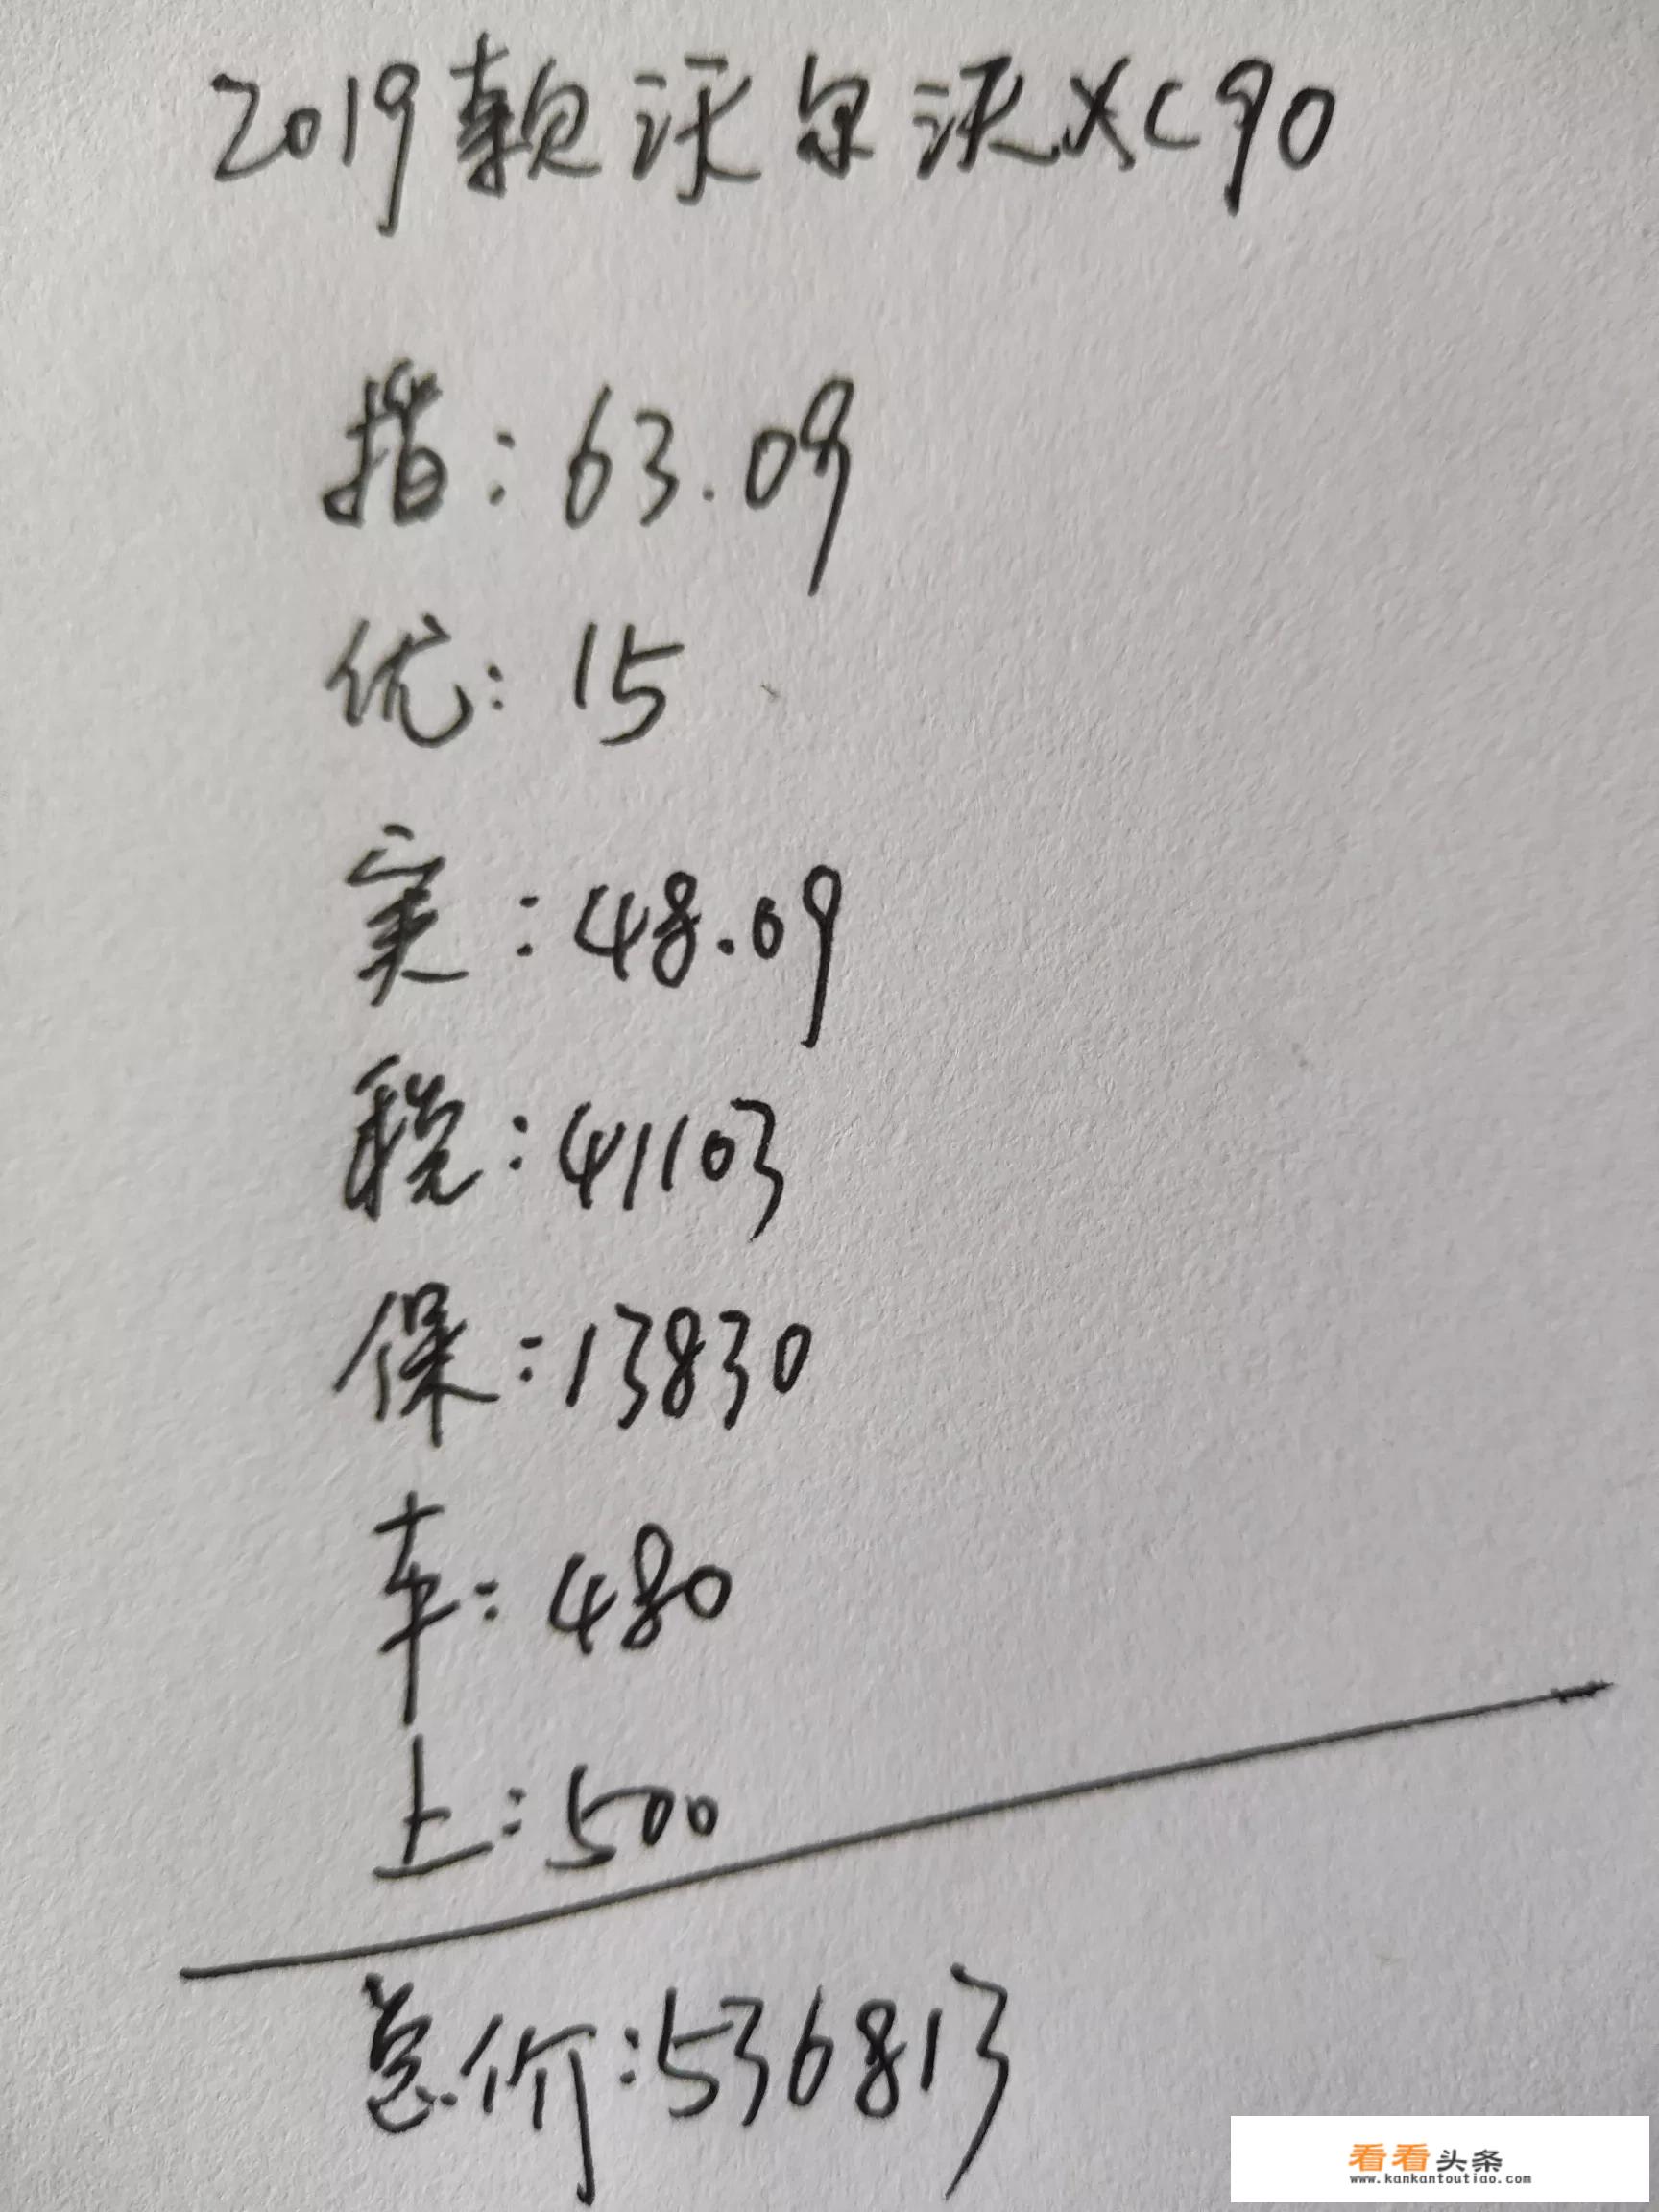 2019款沃尔沃XC90
指:63.09
优:15
实:48.09
税:41103
保:13830
车:480
上:500
总价:536813
看看头条
www.kankantoutiao.com